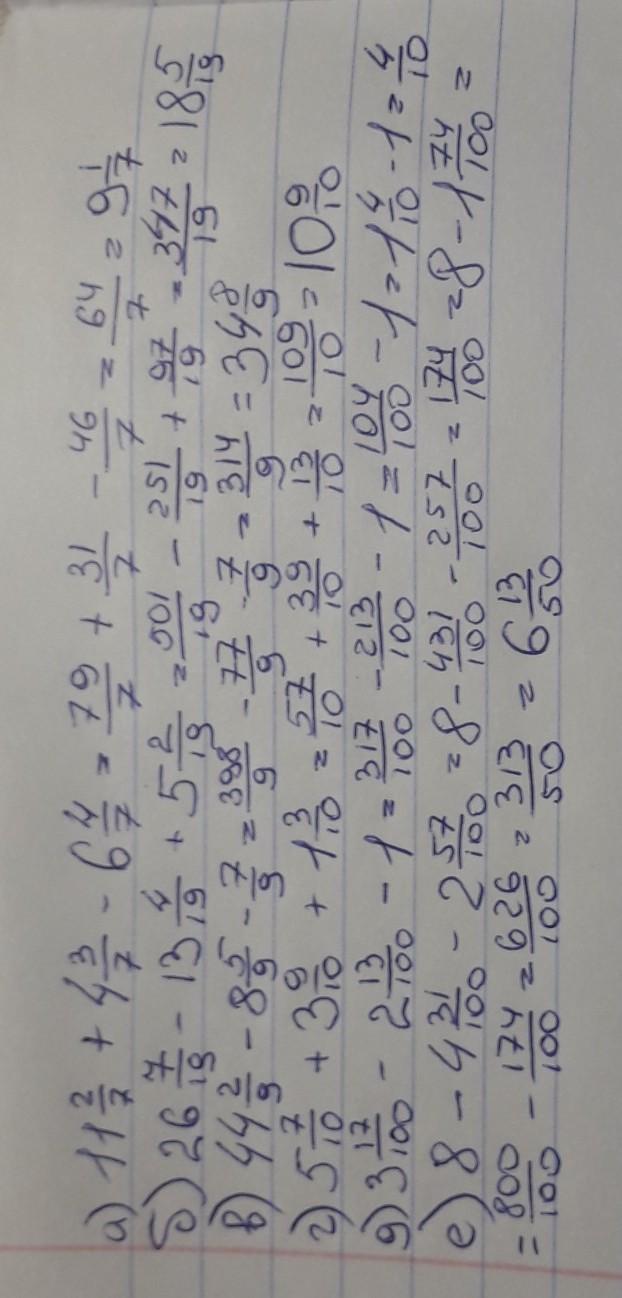 а) 11 2/7 + 4 3/7 - 6 4/7 = 79/7 + 31/7 - 46/7 = 64/7 = 9 1/7
б) 26 7/19 - 13 4/19 + 5 2/19 = 501/19 - 251/19 + 97/19 = 347/19 = 18 5/19
в) 44 2/9 - 8 5/9 - 7/9 = 398/9 - 77/9 - 7/9 = 314/9 = 34 8/9
г) 5 7/10 + 3 9/10 + 1 3/10 = 57/10 + 39/10 + 13/10 = 109/10 = 10 9/10
д) 3 17/100 - 2 13/100 - 1 = 317/100 - 213/100 - 1 = 104/100 - 1 = 1 4/10 - 1 = 4/10
е) 8 - 4 31/100 - 2 57/100 = 8 - 431/100 - 257/100 = 174/100 = 8 - 1 74/100 =
= 800/100 - 174/100 = 626/100 = 313/50 = 6 13/50